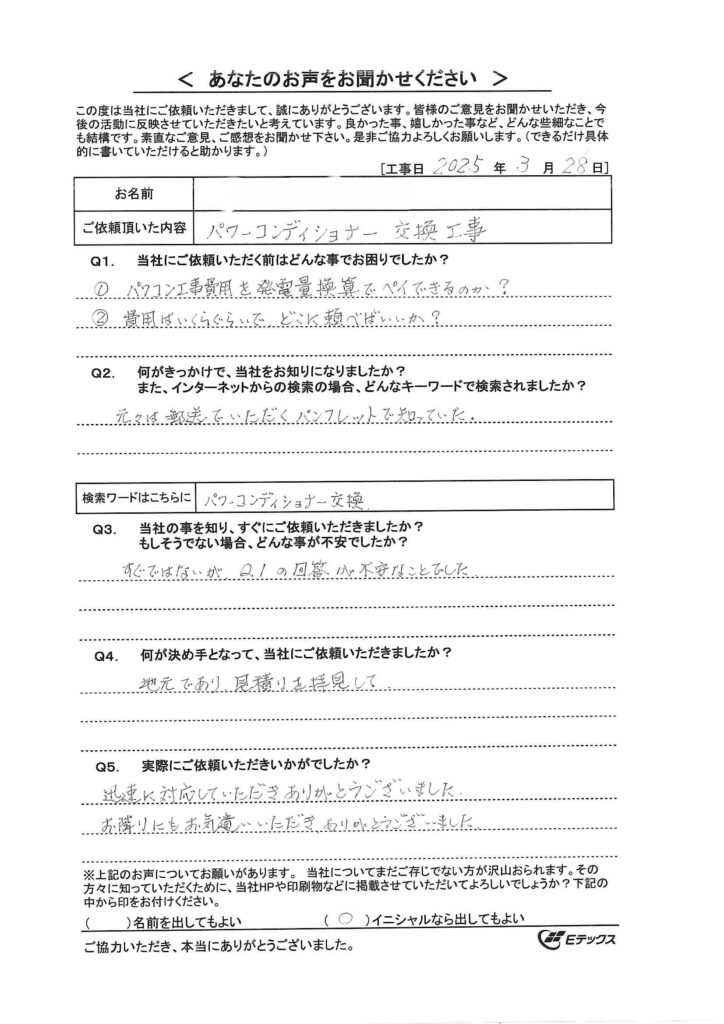 ＜ あなたのお声をお聞かせください ＞
この度は当社にご依頼いただきまして、誠にありがとうございます。皆様のご意見をお聞かせいただき、今
後の活動に反映させていただきたいと考えています。良かった事、嬉しかった事など、どんな些細なことで
も結構です。素直なご意見、ご感想をお聞かせ下さい。是非ご協力よろしくお願いします。（できるだけ具体
的に書いていただけると助かります。）
[工事日 2025 年 3 月 28 日]
お名前
ご依頼頂いた内容 パワーコンディショナー 交換工事
Q1. 当社にご依頼いただく前はどんな事でお困りでしたか？
① パワコン工事費用を発電量換算でペイできるのか？
② 費用はいくらぐらいで どこに頼べばいいか？
Q2. 何がきっかけで、当社をお知りになりましたか？
また、インターネットからの検索の場合、どんなキーワードで検索されましたか？
元々は郵送でいただくパンフレットで知っていた.
検索ワードはこちらに パワーコンディショナー交換
Q3. 当社の事を知り、すぐにご依頼いただきましたか？
もしそうでない場合、どんな事が不安でしたか？
すぐではないが、Q1の回答が不安なことでした
Q4. 何が決め手となって、当社にご依頼いただきましたか？
地元であり、見積りを拝見して.
Q5. 実際にご依頼いただきいかがでしたか？
迅速に対応していただきありがとうございました.
お隣りにもお気遣いいただきありがとうございました.
※上記のお声についてお願いがあります。 当社についてまだご存じでない方が沢山おられます。その
方々に知っていただくために、当社HPや印刷物などに掲載させていただいてよろしいでしょうか？下記の
中から印をお付けください。
（ ）名前を出してもよい （ ○ ）イニシャルなら出してもよい
ご協力いただき、本当にありがとうございました。 Eテックス